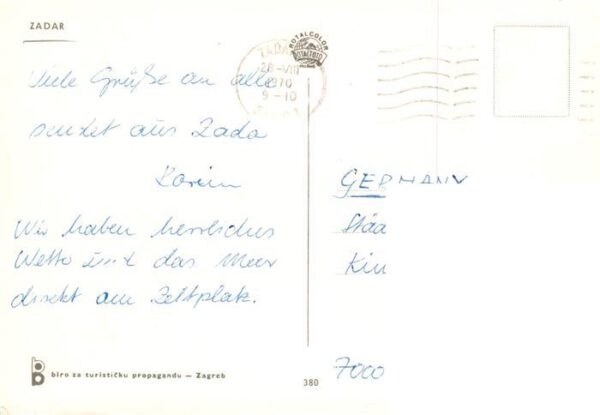 ZADAR
ROTALCOLOR
ZADAR
28-VIII
1970
9-10
Viele Grüße an alle
sendet aus Zada
Karin
Wir haben herrliches
Wetter und das Meer
direkt am Zeltplatz.
GERMANY
7000
biro za turističku propagandu – Zagreb
380